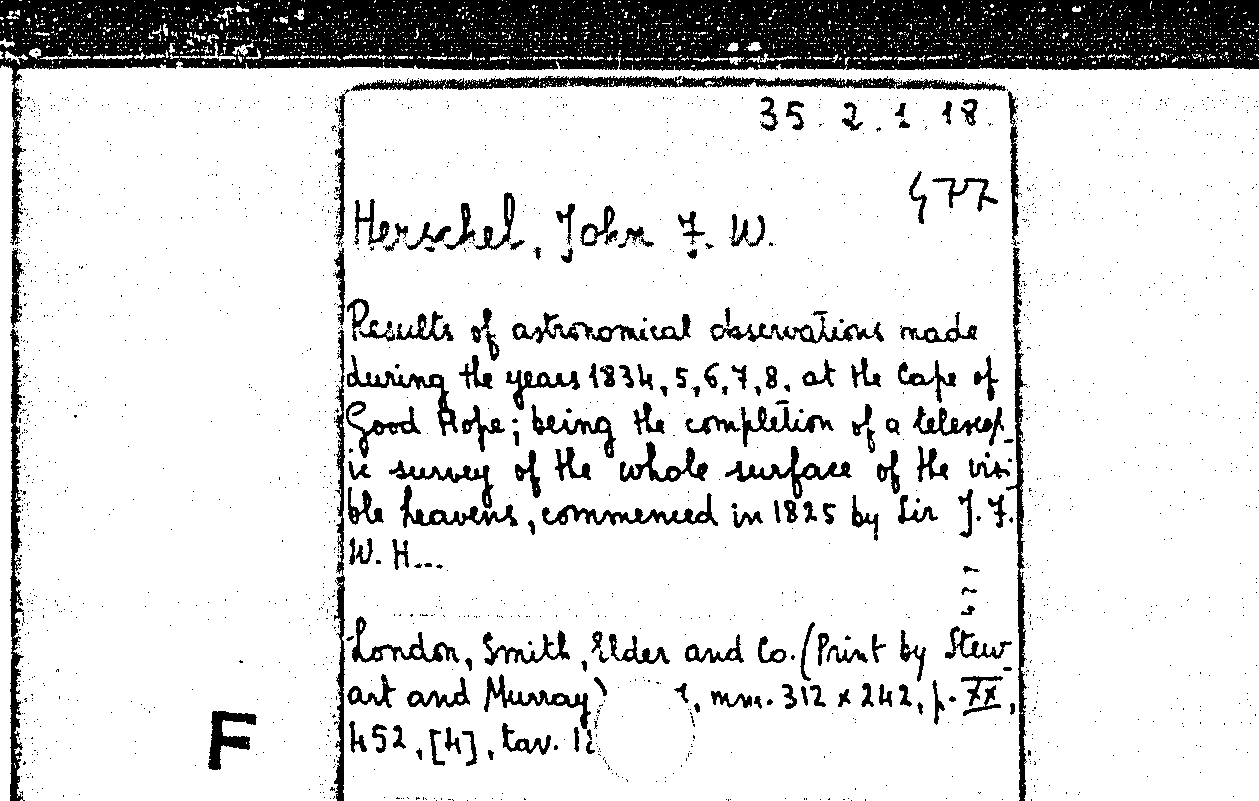 35 2.1 18
477
Herschel, John F. W.
Results of astronomical observations made
during the years 1834, 5, 6, 7, 8. at the Cape of
Good Hope; being the completion of a telescop-
ic survey of the whole surface of the visi-
ble heavens, commenced in 1825 by Sir J. F.
W. H...
477
London, Smith, Elder and Co. (Print by Stew-
art and Murray) , mm. 312 x 242, p. XX,
452, [4], tav.
F